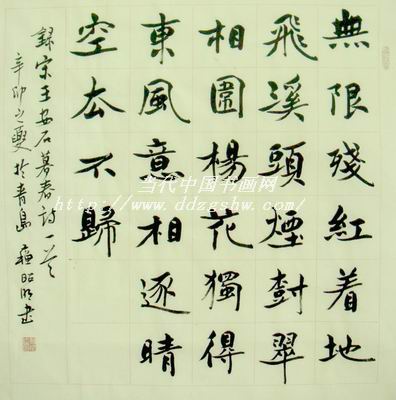 無限殘紅着地
飛溪頭煙樹翠
相圍楊花獨得
東風意相逐晴
空去不歸
録宋王安石暮春詩一首
辛卯之夏於青島
当代中国书画网
http://www.ddzgshw.com